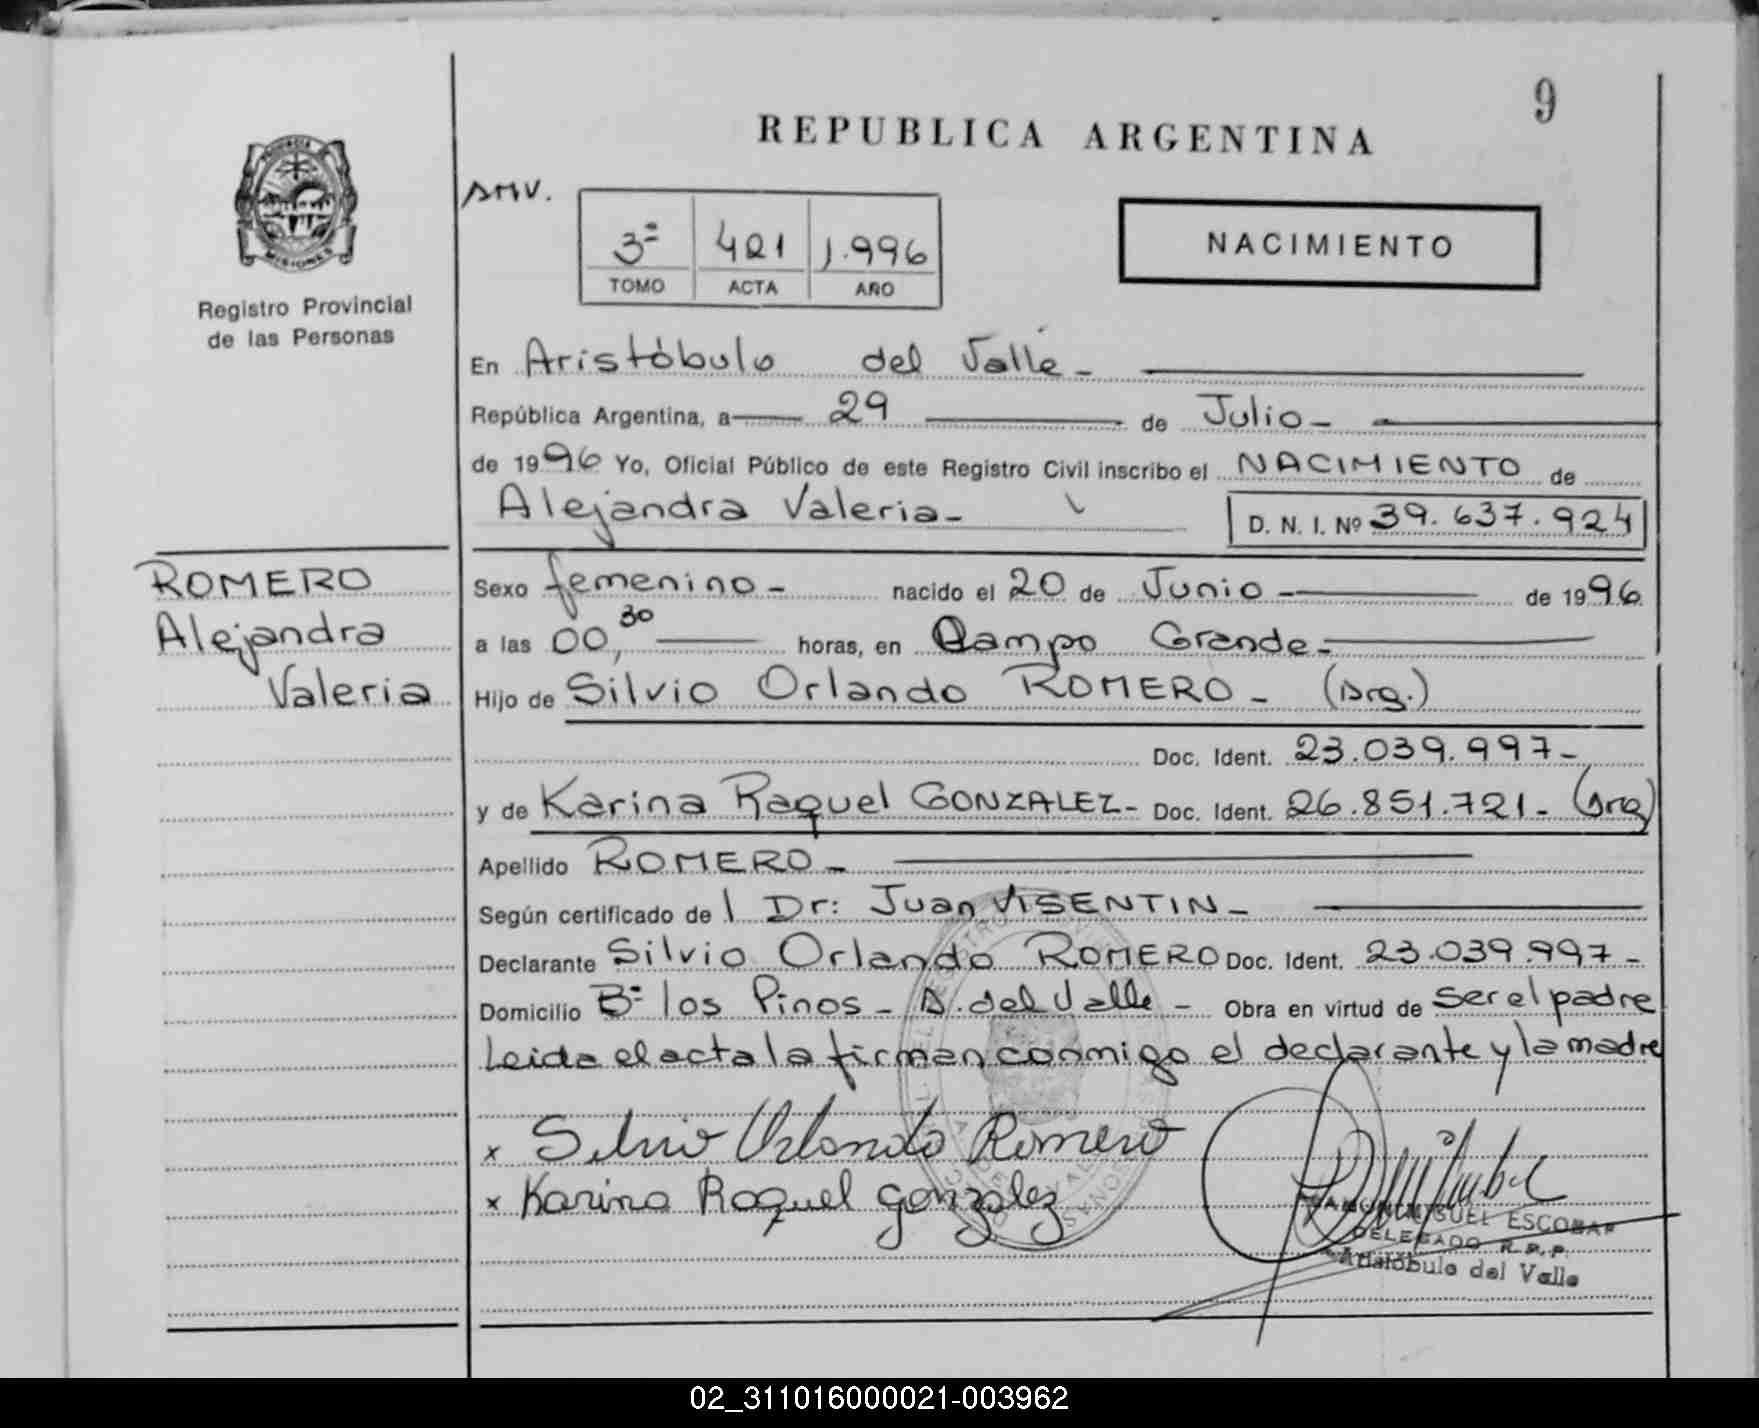 9
REPUBLICA ARGENTINA
PROVINCIA DE
MISIONES
Registro Provincial
de las Personas
AMV.
3ª 421 1.996
TOMO ACTA AÑO
NACIMIENTO
En Aristóbulo del Valle -
República Argentina, a 29 de Julio -
de 1996 Yo, Oficial Público de este Registro Civil inscribo el NACIMIENTO de
Alejandra Valeria - D. N. I. Nº 39.637.924
ROMERO
Alejandra
Valeria
Sexo femenino - nacido el 20 de Junio - de 1996
a las 00,30 horas, en Campo Grande -
Hijo de Silvio Orlando ROMERO - (Arg.)
Doc. Ident. 23.039.997 -
y de Karina Raquel GONZALEZ - Doc. Ident. 26.851.721 - (Arg)
Apellido ROMERO -
Según certificado de l Dr: Juan VISENTIN -
Declarante Silvio Orlando ROMERO Doc. Ident. 23.039.997 -
Domicilio Bº los Pinos - A. del Valle - Obra en virtud de ser el padre
Leida el acta la firman conmigo el declarante y la madre
x Silvio Orlando Romero
x Karina Raquel gonzalez
MIGUEL ESCOBAR
DELEGADO R.P.P.
Aristóbulo del Valle
02_311016000021-003962